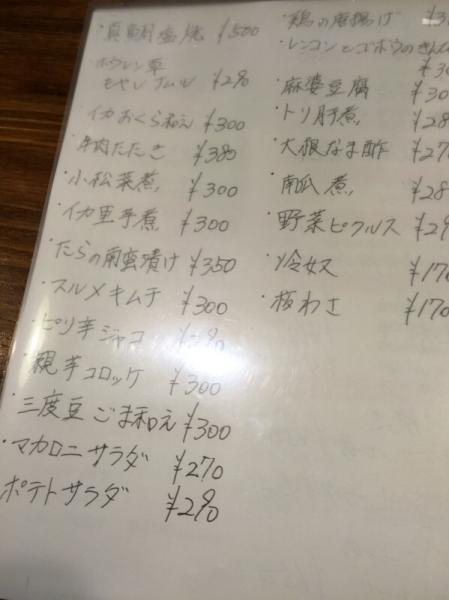 ・真鯛塩焼 ¥500
ホウレン草
もやしナムル ¥290
・イカおくら和え ¥300
・牛肉たたき ¥380
・小松菜煮 ¥300
・イカ里芋煮 ¥300
・たらの南蛮漬け ¥350
・スルメキムチ ¥300
・ピリ辛ジャコ
・親芋コロッケ ¥300
・三度豆ごま和え ¥300
・マカロニサラダ ¥270
ポテトサラダ ¥290
・鶏の唐揚げ
・レンコンとゴボウの
・麻婆豆腐
・トリ肝煮
・大根なま酢
・南瓜煮
・野菜ピクルス
・冷奴 ¥170
・板わさ ¥170